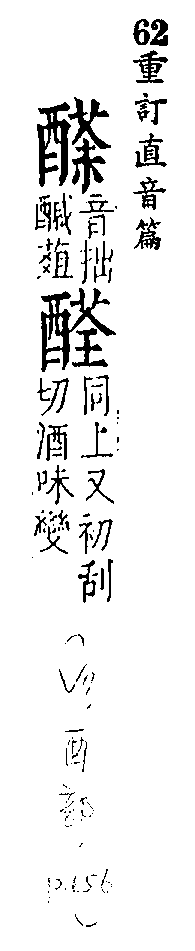 62重訂直音篇
音拙
醎
同上又初刮
切酒味變
酉部, p.156)